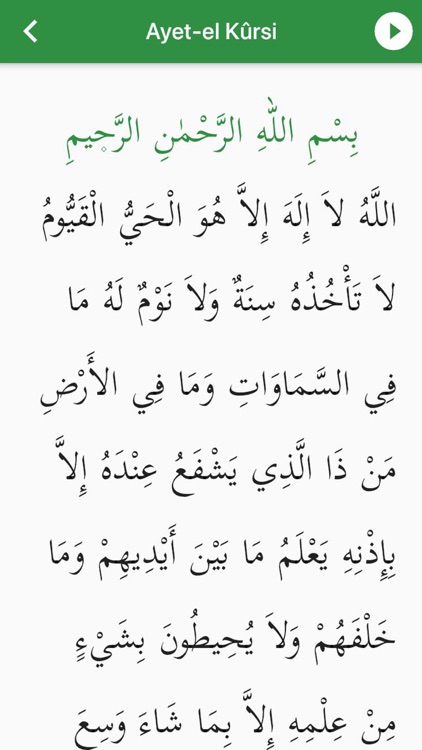 Ayet-el Kûrsi
بِسْمِ اللهِ الرَّحْمٰنِ الرَّحِيمِ
اللَّهُ لاَ إِلَهَ إِلاَّ هُوَ الْحَيُّ الْقَيُّومُ
لاَ تَأْخُذُهُ سِنَةٌ وَلاَ نَوْمٌ لَهُ مَا
فِي السَّمَاوَاتِ وَمَا فِي الأَرْضِ
مَنْ ذَا الَّذِي يَشْفَعُ عِنْدَهُ إِلاَّ
بِإِذْنِهِ يَعْلَمُ مَا بَيْنَ أَيْدِيهِمْ وَمَا
خَلْفَهُمْ وَلاَ يُحِيطُونَ بِشَيْءٍ
مِنْ عِلْمِهِ إِلاَّ بِمَا شَاءَ وَسِعَ